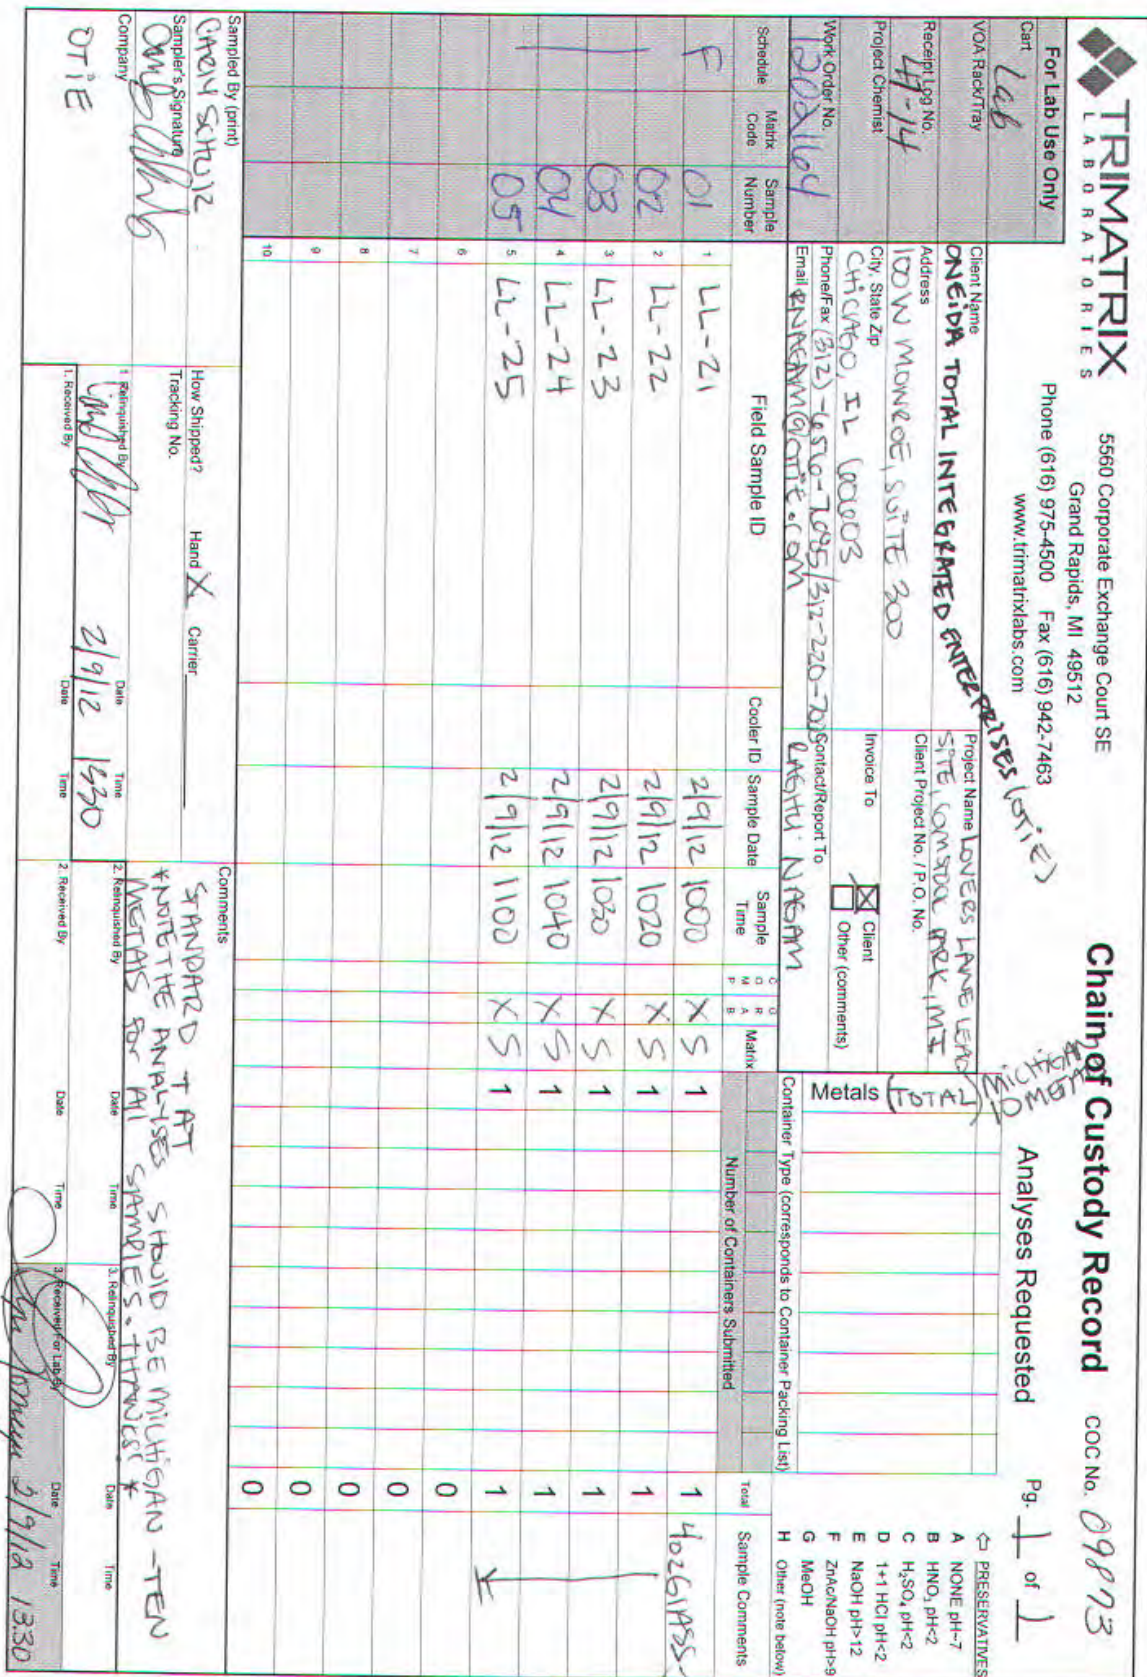 TRIMATRIX
LABORATORIES
5560 Corporate Exchange Court SE
Grand Rapids, MI 49512
Phone (616) 975-4500 Fax (616) 942-7463
www.trimatrixlabs.com
Chain of Custody Record
COC No. 098773
Analyses Requested
Pg. 1 of 1
For Lab Use Only
Cart Lab
VOA Rack/Tray
Receipt Log No.
47-14
Project Chemist
Work Order No.
1202164
Client Name
ONEIDA TOTAL INTEGRATED ENTERPRISES (OTIE)
Address
100 W MONROE, SUITE 300
City, State Zip
CHICAGO, IL 60603
Phone/Fax (312)-656-7095/312-220-7025
Email RNAGAM@OTIE.COM
Project Name LOVERS LANE LEAD
SITE, COMSTOCK PARK, MI
Client Project No. / P.O. No.
Invoice To
X Client
Other (comments)
Contact/Report To
RAGHU NAGAM
Metals (TOTAL) MICHIGAN 10 METALS
Container Type (corresponds to Container Packing List)
Number of Containers Submitted
PRESERVATIVES
A NONE pH~7
B HNO₃ pH<2
C H₂SO₄ pH<2
D 1+1 HCl pH<2
E NaOH pH>12
F ZnAc/NaOH pH>9
G MeOH
H Other (note below)
Schedule Matrix Code Sample Number Field Sample ID Cooler ID Sample Date Sample Time COMP GRAB Matrix Total Sample Comments
F 01 1 LL-21 2/9/12 1000 X S 1 1 4 oz GlASS
02 2 LL-22 2/9/12 1020 X S 1 1
03 3 LL-23 2/9/12 1030 X S 1 1
04 4 LL-24 2/9/12 1040 X S 1 1
05 5 LL-25 2/9/12 1100 X S 1 1
6 0
7 0
8 0
9 0
10 0
Sampled By (print)
CARLY SCHULZ
Sampler's Signature
Company
OTIE
How Shipped? Hand X Carrier
Tracking No.
Comments
STANDARD TAT
*NOTE THE ANALYSES SHOULD BE MICHIGAN-TEN
METALS for All SAMPLES. THANKS! *
1. Relinquished By Date Time
2/9/12 1330
1. Received By Date Time
2. Relinquished By Date Time
2. Received By Date Time
3. Relinquished By Date Time
3. Received For Lab By Date Time
2/9/12 13:30